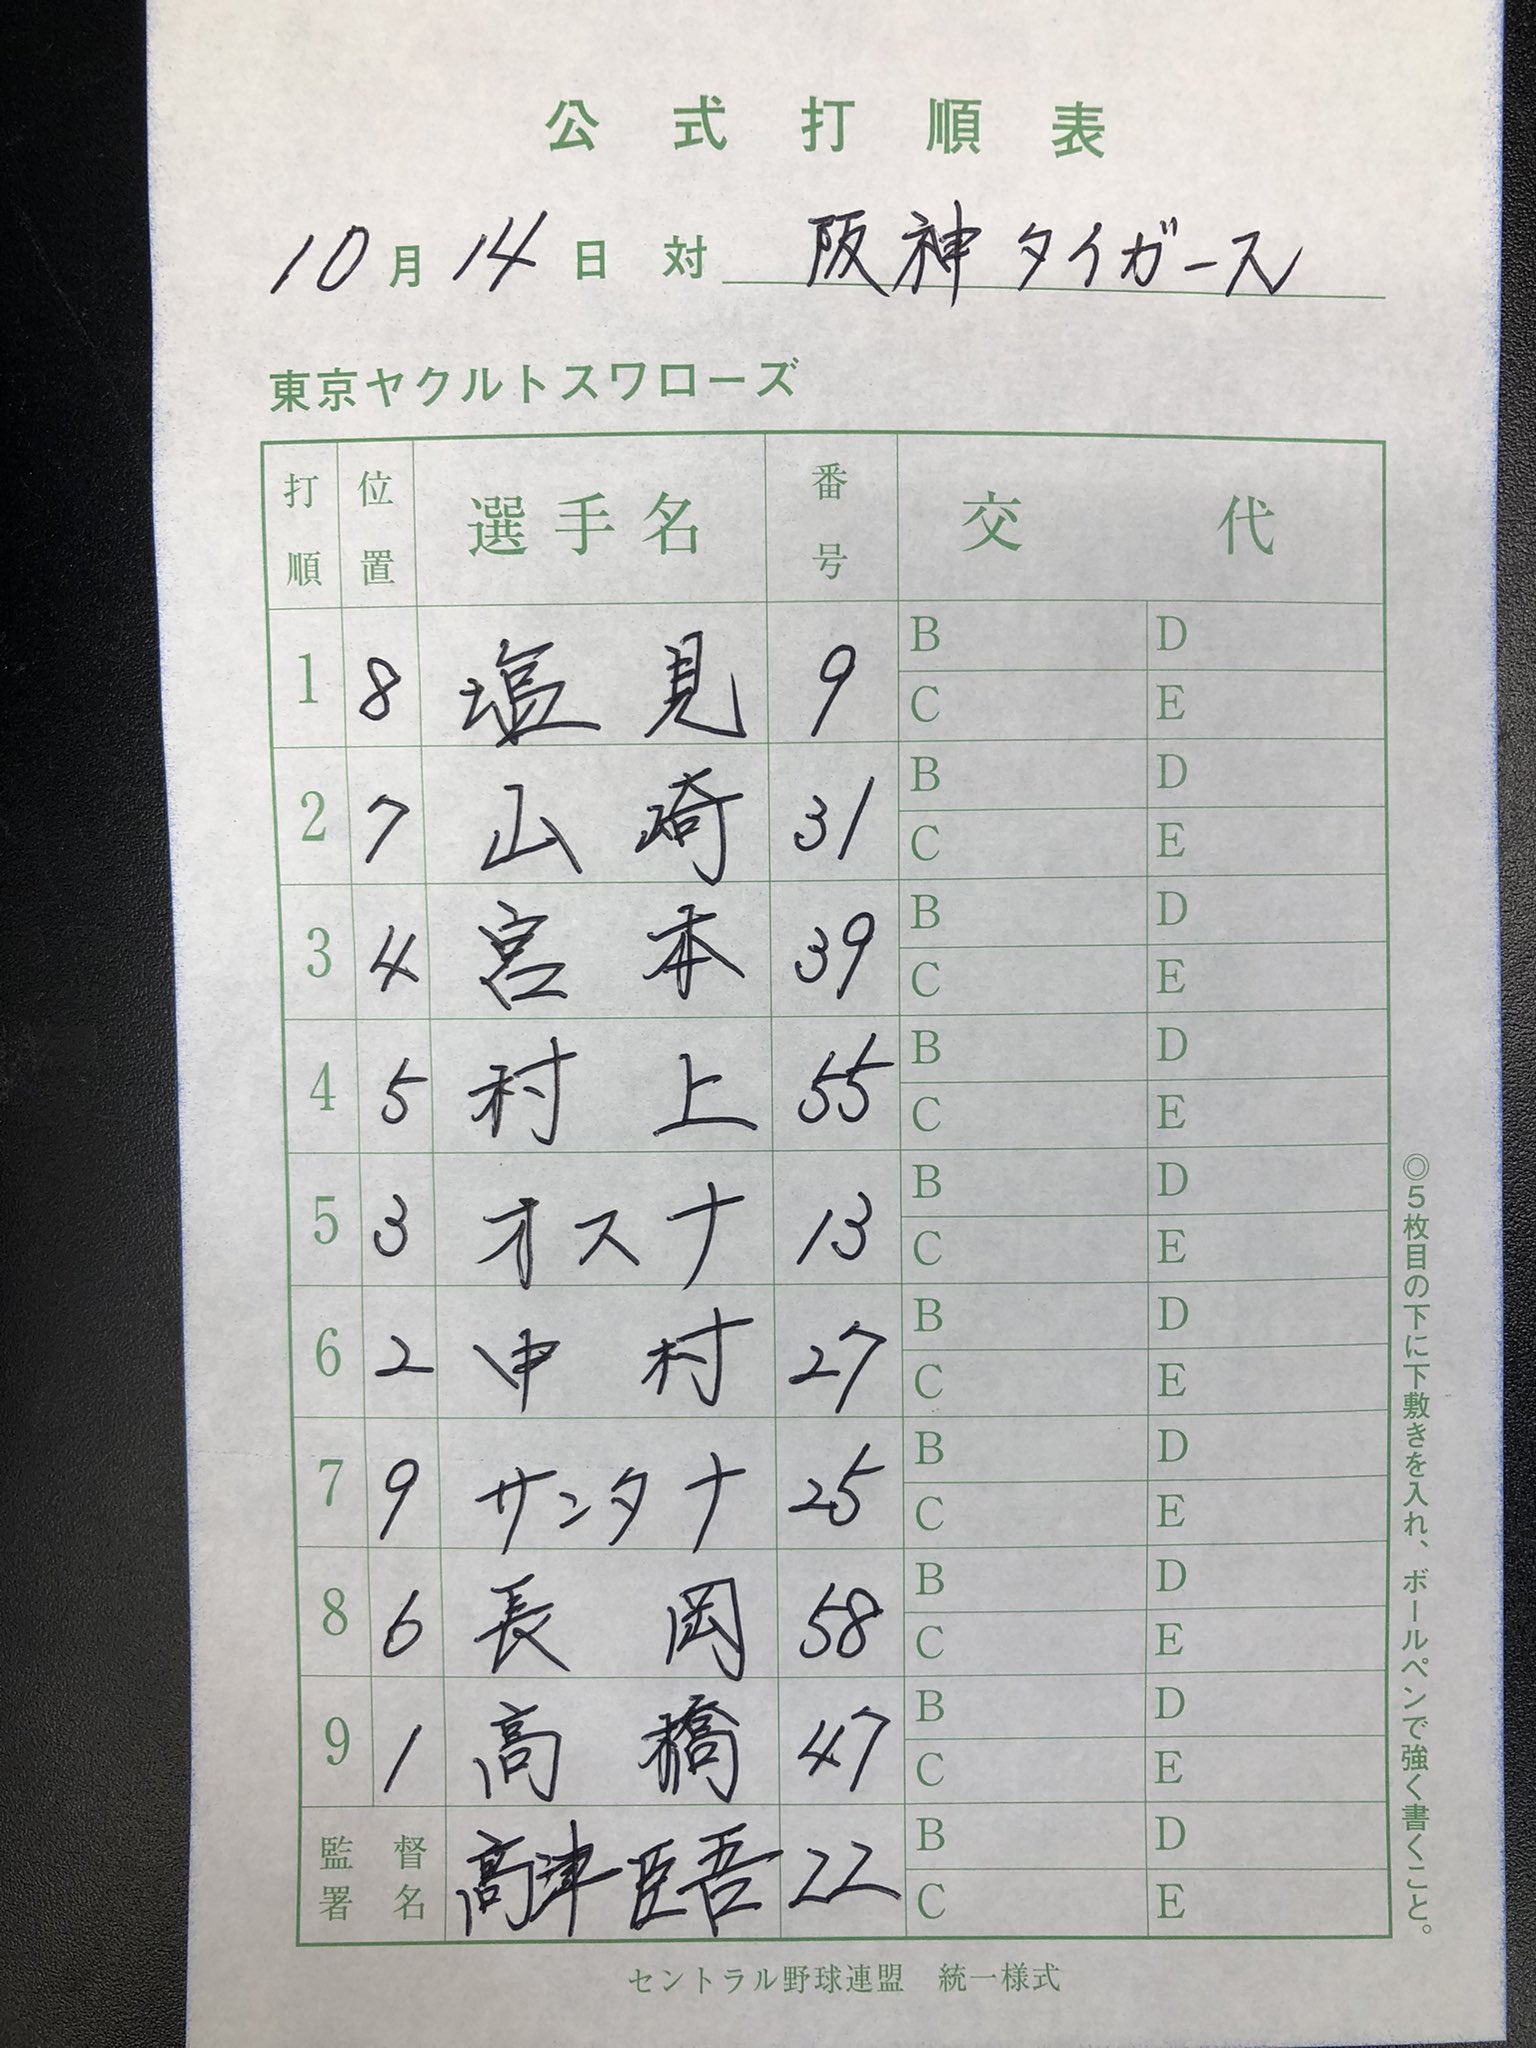 公式打順表
10月14日 対 阪神タイガース
東京ヤクルトスワローズ
打順 位置 選手名 番号 交代
1 8 塩見 9 B D
C E
2 7 山崎 31 B D
C E
3 4 宮本 39 B D
C E
4 5 村上 55 B D
C E
5 3 オスナ 13 B D
C E
6 2 中村 27 B D
C E
7 9 サンタナ 25 B D
C E
8 6 長岡 58 B D
C E
9 1 高橋 47 B D
C E
監督署名 高津臣吾 22 B D
C E
◎5枚目の下に下敷きを入れ、ボールペンで強く書くこと。
セントラル野球連盟 統一様式